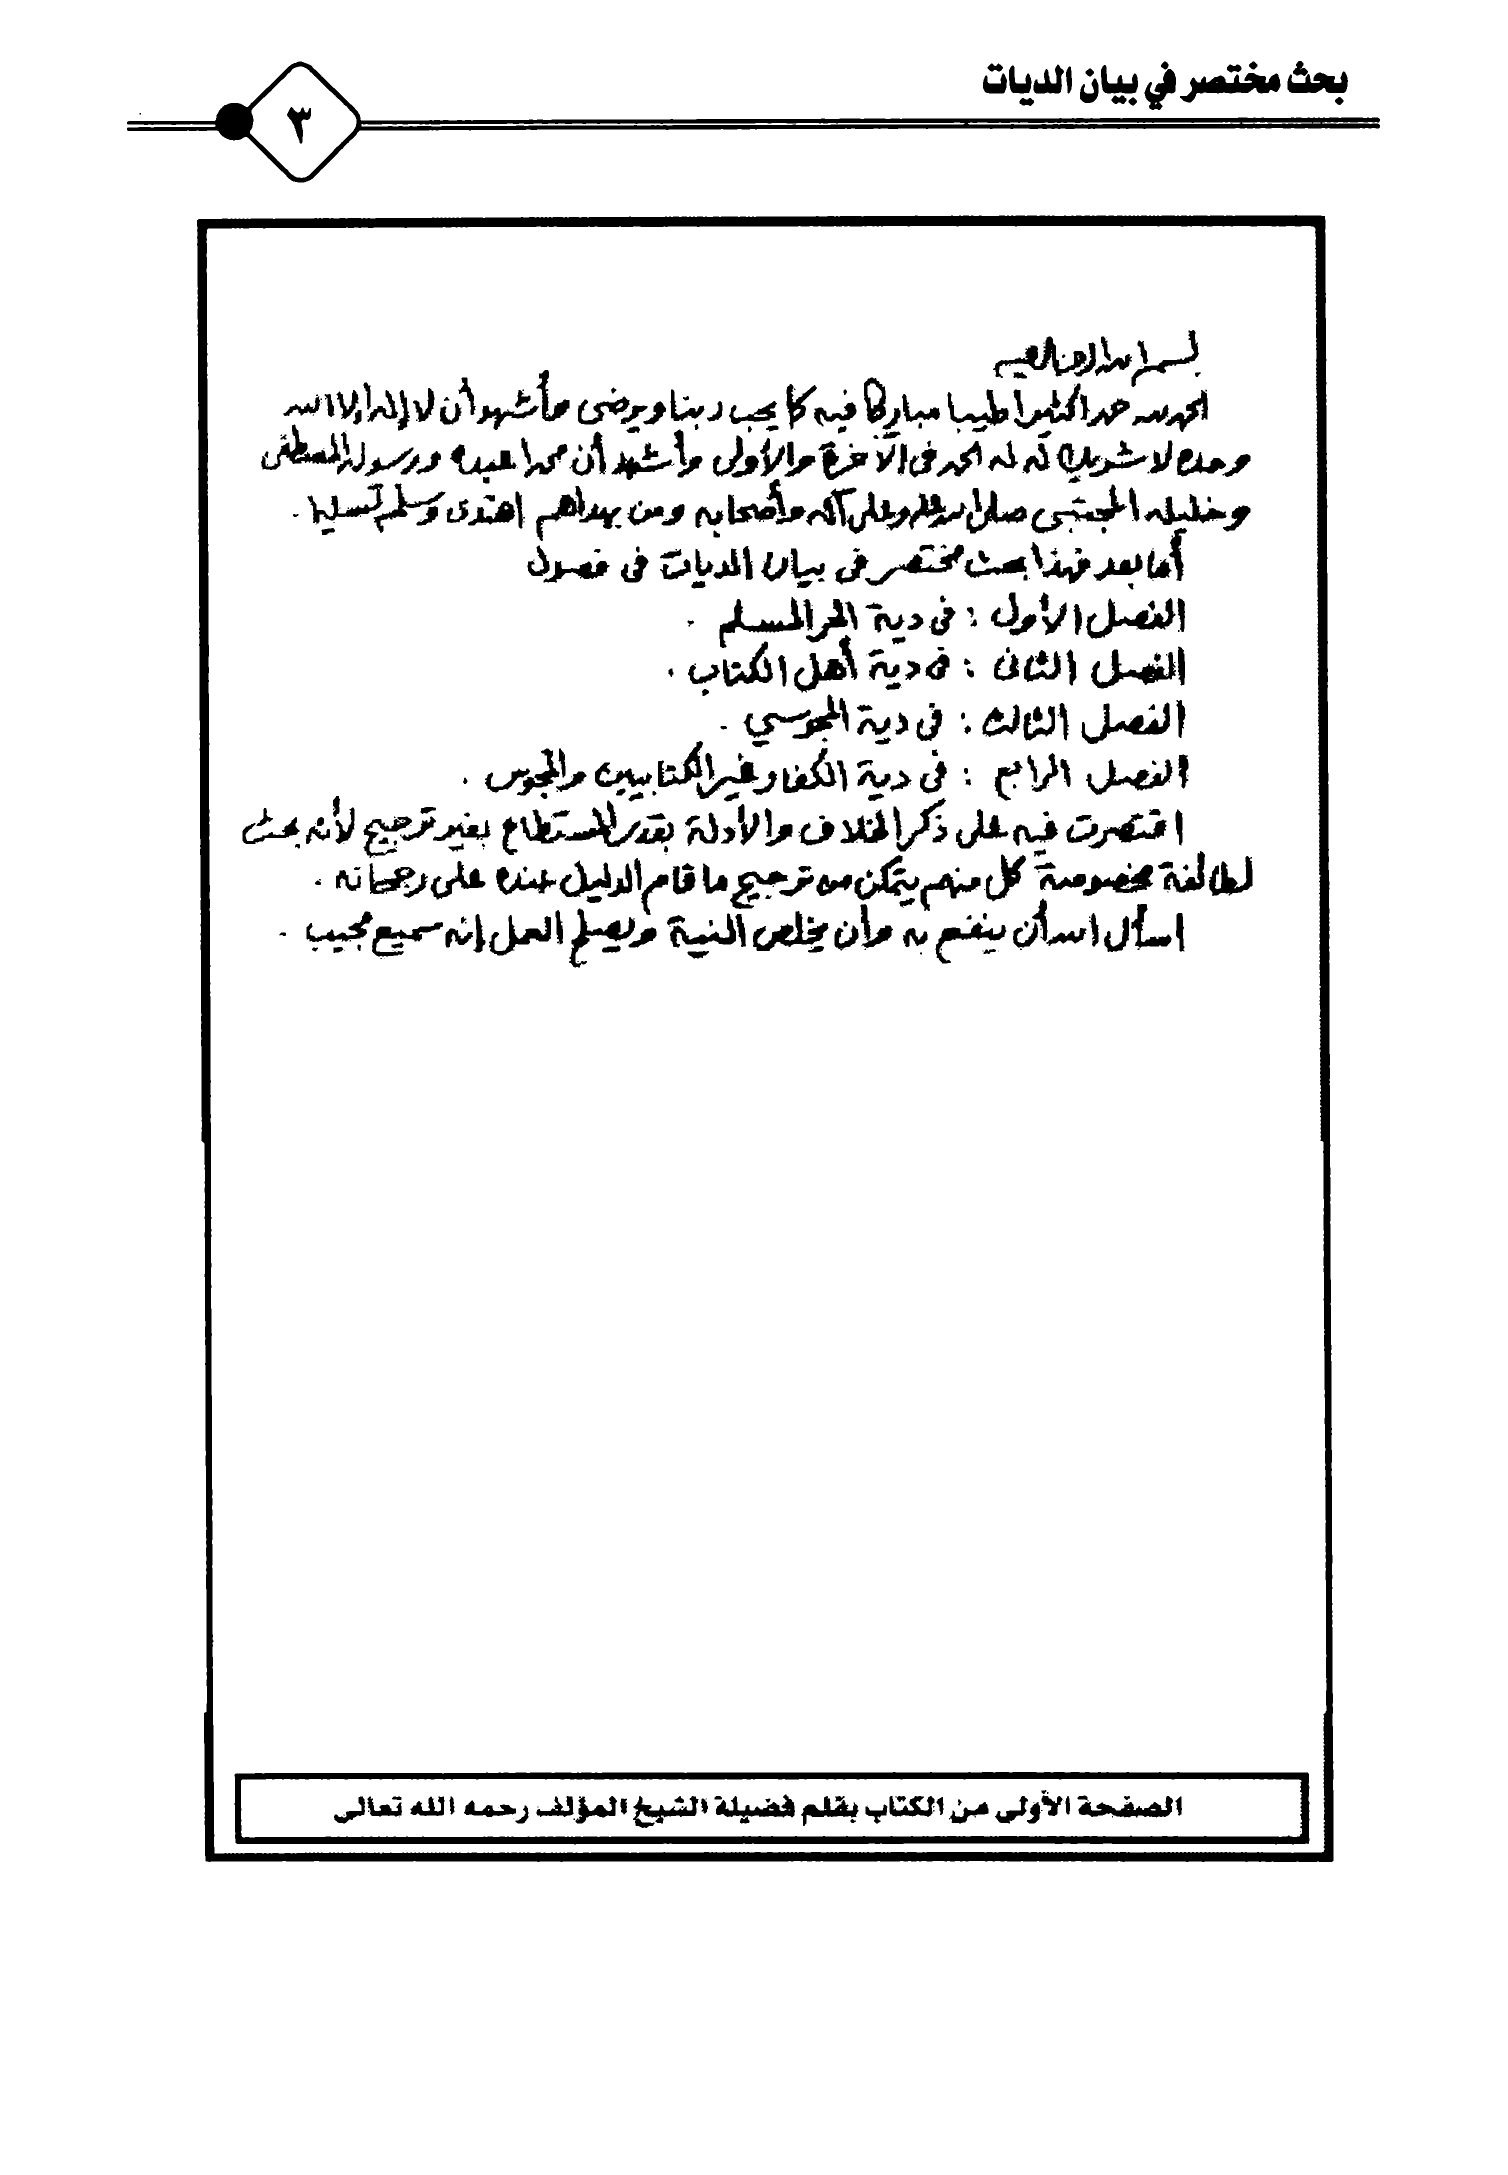 بحث مختصر في بيان الديات
٣
بسم الله الرحمن الرحيم
الحمد لله حمدا كثيرا طيبا مباركا فيه كما يحب ربنا ويرضى وأشهد أن لا إله إلا الله
وحده لا شريك له له الحمد في الآخرة والأولى وأشهد أن محمدا عبده ورسوله المصطفى
وخليله المجتبى صلى الله عليه وعلى آله وأصحابه ومن بهداهم اهتدى وسلم تسليما .
أما بعد فهذا بحث مختصر في بيان الديات في فصول
الفصل الأول : في دية الحر المسلم .
الفصل الثاني : في دية أهل الكتاب .
الفصل الثالث : في دية المجوسي .
الفصل الرابع : في دية الكفار غير الكتابيين والمجوس .
اقتصرت فيه على ذكر الخلاف والأدلة بقدر المستطاع بغير ترجيح لأنه بحث
لطائفة مخصوصة كل منهم يتمكن من ترجيح ما قام الدليل عنده على رجحانه .
اسأل الله أن ينفع به وأن يخلص النية ويصلح العمل إنه سميع مجيب .
الصفحة الأولى من الكتاب بقلم فضيلة الشيخ المؤلف رحمه الله تعالى